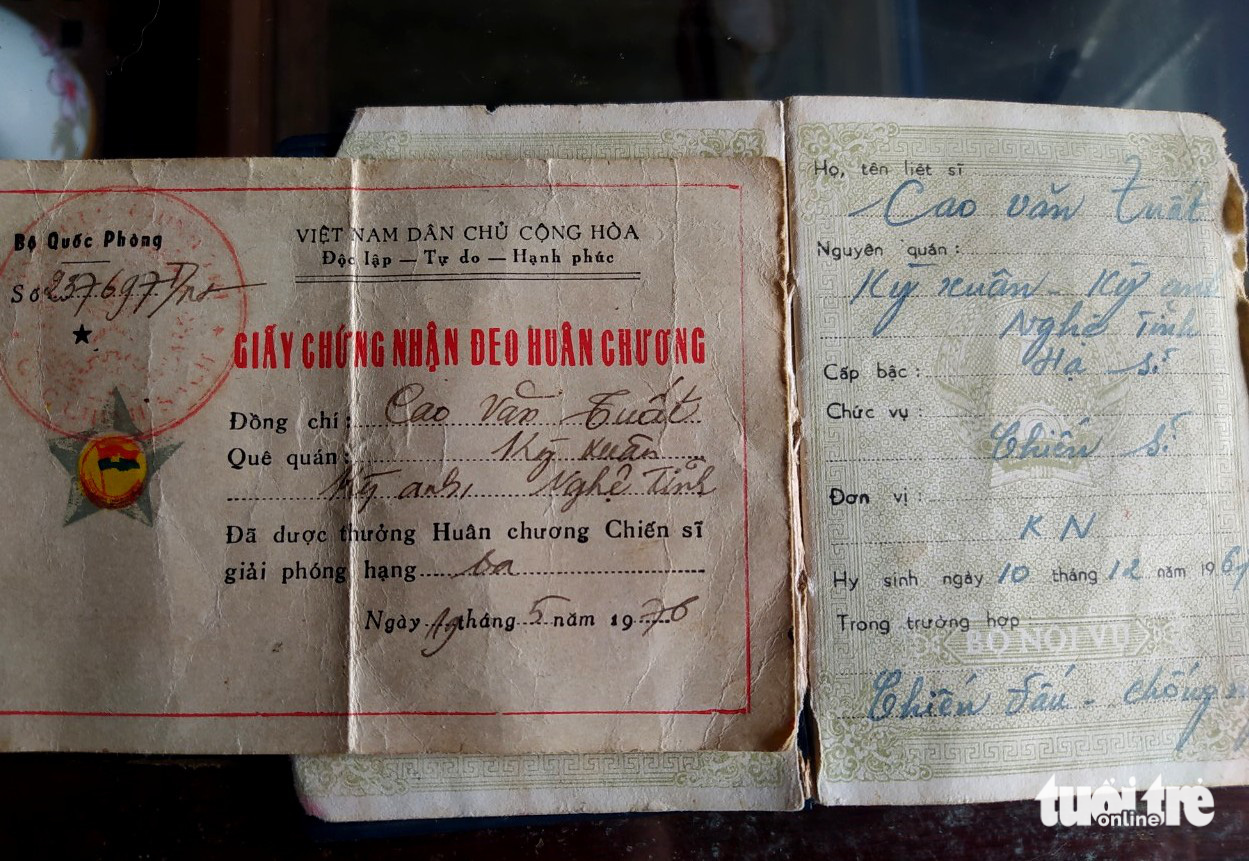 Bộ Quốc Phòng
Số 237697
VIỆT NAM DÂN CHỦ CỘNG HÒA
Độc lập — Tự do — Hạnh phúc
GIẤY CHỨNG NHẬN ĐEO HUÂN CHƯƠNG
Đồng chí: Cao Văn Tuất
Quê quán: Kỳ Xuân
Kỳ anh, Nghệ Tĩnh
Đã được thưởng Huân chương Chiến sĩ
giải phóng hạng ba
Ngày 19 tháng 5 năm 1976
Họ, tên liệt sĩ
Cao văn Tuất
Nguyên quán:
Kỳ xuân - Kỳ anh
Nghệ Tĩnh
Cấp bậc: Hạ sĩ
Chức vụ:
Chiến sĩ
Đơn vị:
KN
Hy sinh ngày 10 tháng 12 năm 196
Trong trường hợp:
BỘ NỘI VỤ
Chiến đấu - chống
tuổi trẻ
online